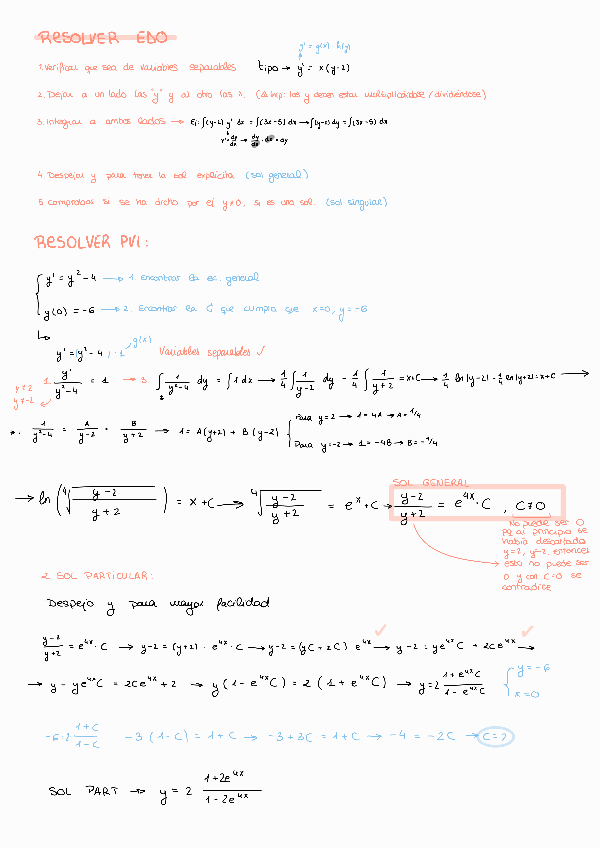 RESOLVER EDO
y' = g(x) · h(y)
1. Verificar que sea de variables separables tipo → y' = x(y-2)
2. Dejar a un lado las "y" y al otro las x. (⚠ imp: las y deben estar multiplicándose/dividiéndose)
3. Integrar a ambos lados → Ej: ∫(y-2) y' dx = ∫(3x-5) dx → ∫(y-2) dy = ∫(3x-5) dx
y' = dy/dx → dy/dx · dx = dy
4. Despejar y para tener la sol explícita (sol general)
5. comprobar si se ha dicho por ej y≠0, si es una sol. (sol singular)
RESOLVER PVI:
y' = y² - 4 → 1. Encontrar la ec. general
y(0) = -6 → 2. Encontrar la C que cumpla que x=0, y=-6
g(x)
y' = (y² - 4) · 1 Variables separables ✓
y≠2
y≠-2
1. y'/(y²-4) = 1 → 3. ∫ 1/(y²-4) dy = ∫1 dx → 1/4 ∫ 1/(y-2) dy - 1/4 ∫ 1/(y+2) = x+C → 1/4 ln|y-2| - 1/4 ln|y+2| = x+C →
*. 1/(y²-4) = A/(y-2) + B/(y+2) → 1 = A(y+2) + B(y-2)
Para y=2 → 1 = 4A → A = 1/4
Para y=-2 → 1 = -4B → B = -1/4
SOL GENERAL
→ ln (⁴√((y-2)/(y+2))) = x+C → ⁴√((y-2)/(y+2)) = eˣ+C → (y-2)/(y+2) = e⁴ˣ·C , C≠0
No puede ser 0
pq al principio se
había descartado
y=2, y=-2, entonces
esto no puede ser
0 y con C=0 se
contradice
2. SOL PARTICULAR:
Despejo y para mayor facilidad
(y-2)/(y+2) = e⁴ˣ·C → y-2 = (y+2) · e⁴ˣ·C → y-2 = (yC + 2C) e⁴ˣ → y-2 = ye⁴ˣC + 2Ce⁴ˣ →
→ y - ye⁴ˣC = 2Ce⁴ˣ + 2 → y(1 - e⁴ˣC) = 2(1 + e⁴ˣC) → y = 2 (1+e⁴ˣC)/(1-e⁴ˣC)
y=-6
x=0
-6 = 2 · (1+C)/(1-C) -3(1-C) = 1+C → -3+3C = 1+C → -4 = -2C → C=2
SOL PART → y = 2 (1+2e⁴ˣ)/(1-2e⁴ˣ)